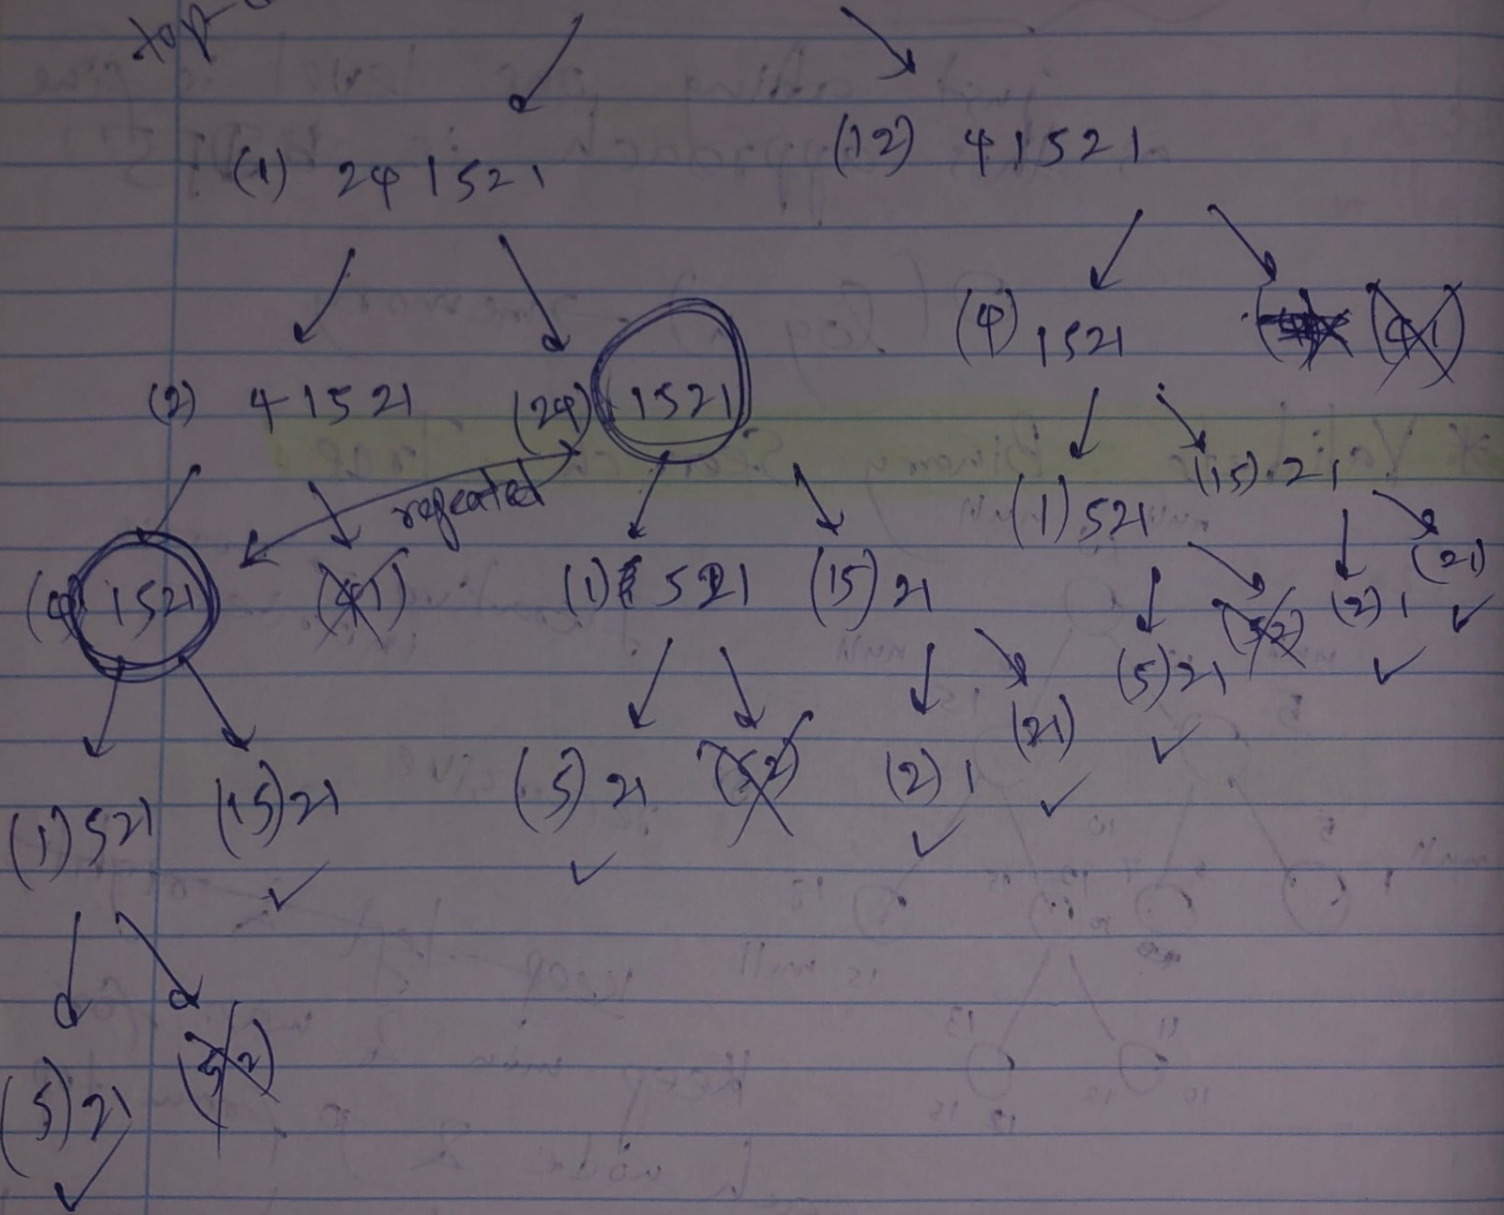 top-
(1) 241521
(12) 41521
(4) 1521
(41)
(2) 41521
(24) 1521
repeated
(1) 521
(15) 21
(4) 1521
(41)
(1) 521
(15) 21
(5) 21
(52)
(2) 1
(21)
(1) 521
(15) 21
(5) 21
(52)
(2) 1
(21)
(5) 21
(52)